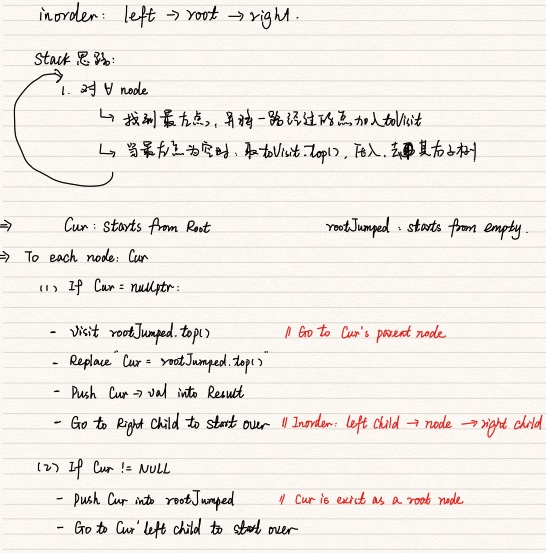 inorder: left → root → right.
Stack 思路:
1. 对 ∀ node
↳ 找到最左点, 并将一路经过的点加入toVisit
↳ 当最左点为空时, 取toVisit.top(), 压入, 去其右子树
⇒ Cur: starts from Root rootJumped: starts from empty.
⇒ To each node: Cur
(1) If Cur = nullptr:
- Visit rootJumped.top() // Go to Cur's parent node
- Replace "Cur = rootJumped.top()"
- Push Cur → val into Result
- Go to Right Child to start over // Inorder: left child → node → right child
(2) If Cur != NULL
- Push Cur into rootJumped // Cur is exist as a root node
- Go to Cur' left child to start over